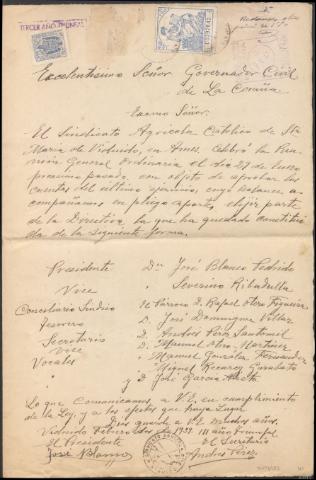 TERCER AÑO TRIUNFAL
Excelentísimo Señor Gobernador Civil
de La Coruña
Excmo Señor:
El Sindicato Agrícola Católico de Sta
María de Viduido, en Ames, celebró la Reu-
nión General Ordinaria el día 29 de
proximo pasado, con objeto de aprobar las
cuentas del último ejercicio, cuyo balance a-
compañamos en pliego aparte, elejir parte
de la Directiva, la que ha quedado constitui-
da de la siguiente forma.
Presidente Dn José Blanco Pedrido
Vice " Severino Ribadulla
Conciliario Síndico El Párroco D. Rafael Otero Figueira
Tesorero D. José Dominguez Villar
Secretario D. Andrés Pérez Santomil
Vice D. Manuel Otero Martínez
Vocales " Manuel González Fernández
" Miguel Recarey
" y D. José García
Lo que Comunicamos a V.E. en cumplimiento
de la Ley, y a los efectos que haya lugar
Dios guarde a V.E. muchos años.
Viduido Febrero de 1939 III año Triunfal
El Presidente El Secretario
José Blanco Andrés Pérez